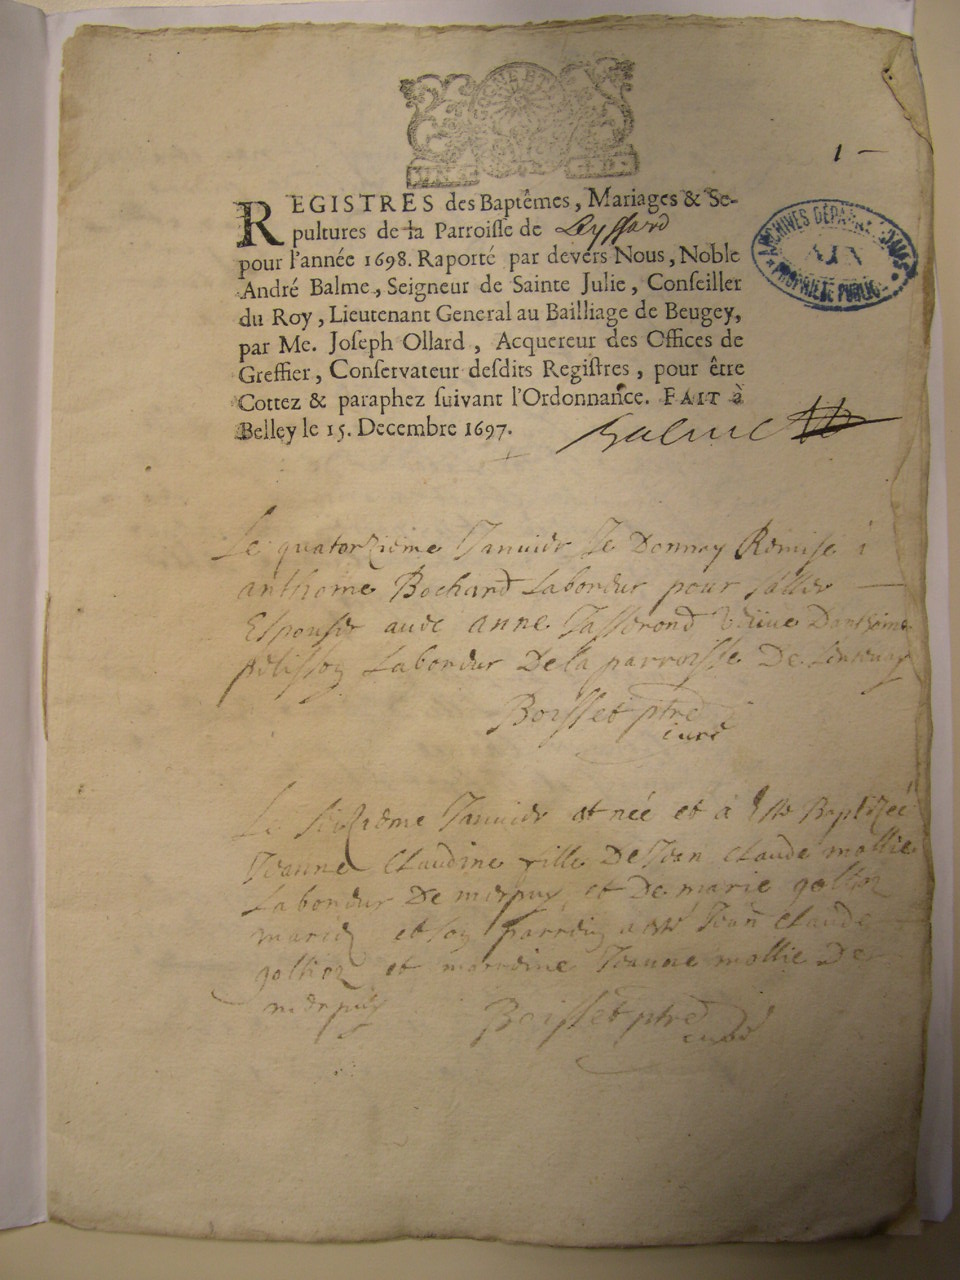 1 —
REGISTRES des Baptêmes, Mariages & Se-
pultures de la Parroisse de Leyssard
pour l'année 1698. Raporté par devers Nous, Noble
André Balme, Seigneur de Sainte Julie, Conseiller
du Roy, Lieutenant General au Bailliage de Beugey,
par Me. Joseph Ollard, Acquereur des Offices de
Greffier, Conservateur desdits Registres, pour être
Cottez & paraphez suivant l'Ordonnance. FAIT à
Belley le 15. Decembre 1697. Balme
ARCHIVES DÉPARTEMENTALES
AIN
PROPRIÉTÉ PUBLIQUE
Le quatorzieme Janvier Je Donney Remise
anthoine Bochard Labordur pour saller
Espouser avec anne veiive Danthoine
pelisson Labordur De la parroisse De
Boisset ptre
curé
Le seizieme Janvier at née et à Baptizeé
Jeanne Claudine fille De Jean Claude mollie
Labordur De merpuis et De marie golhoz
mariez et son parrein Jean Claude
golhoz et marreine Jeanne mollie De
merpuis Boisset ptre
curé